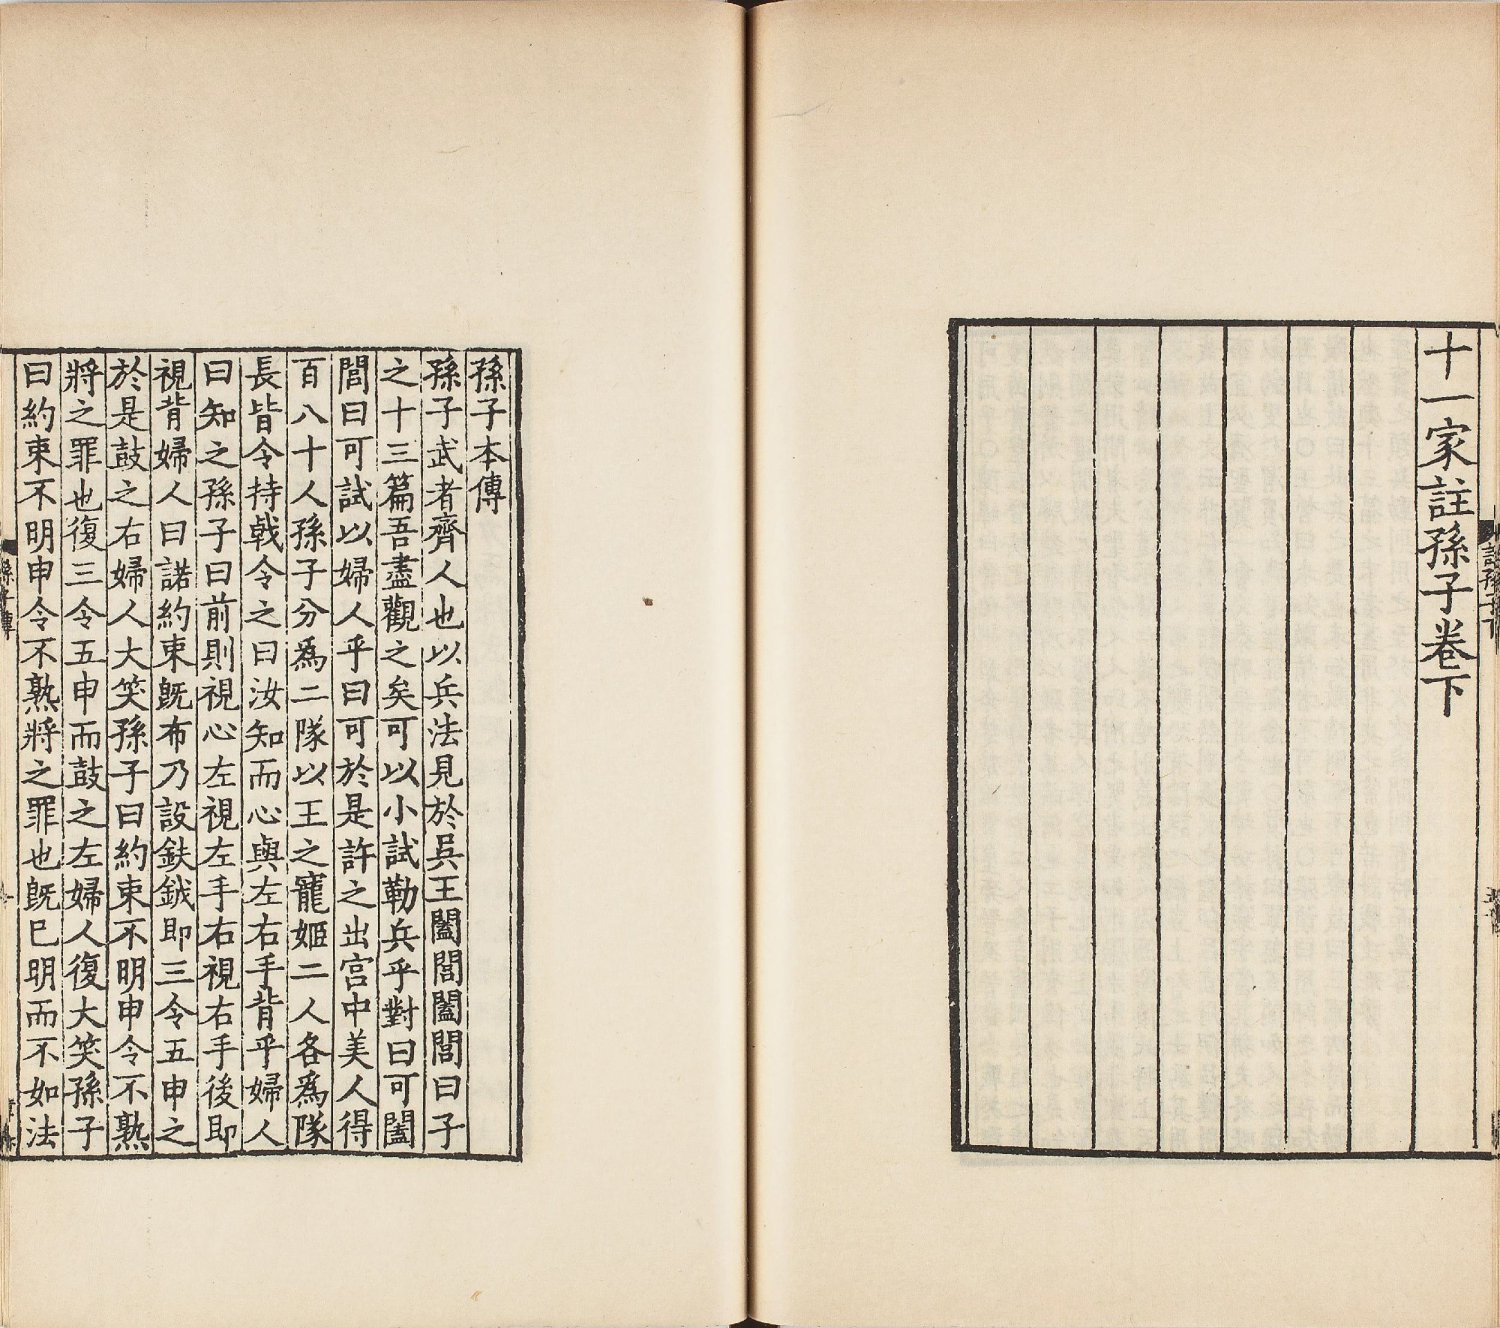 十一家註孫子卷下
孫子本傳
孫子武者齊人也以兵法見於吳王闔閭闔閭曰子
之十三篇吾盡觀之矣可以小試勒兵乎對曰可闔
閭曰可試以婦人乎曰可於是許之出宮中美人得
百八十人孫子分爲二隊以王之寵姬二人各爲隊
長皆令持戟令之曰汝知而心與左右手背乎婦人
曰知之孫子曰前則視心左視左手右視右手後即
視背婦人曰諾約束旣布乃設鈇鉞即三令五申之
於是鼓之右婦人大笑孫子曰約束不明申令不熟
將之罪也復三令五申而鼓之左婦人復大笑孫子
曰約束不明申令不熟將之罪也旣已明而不如法
孫子傳